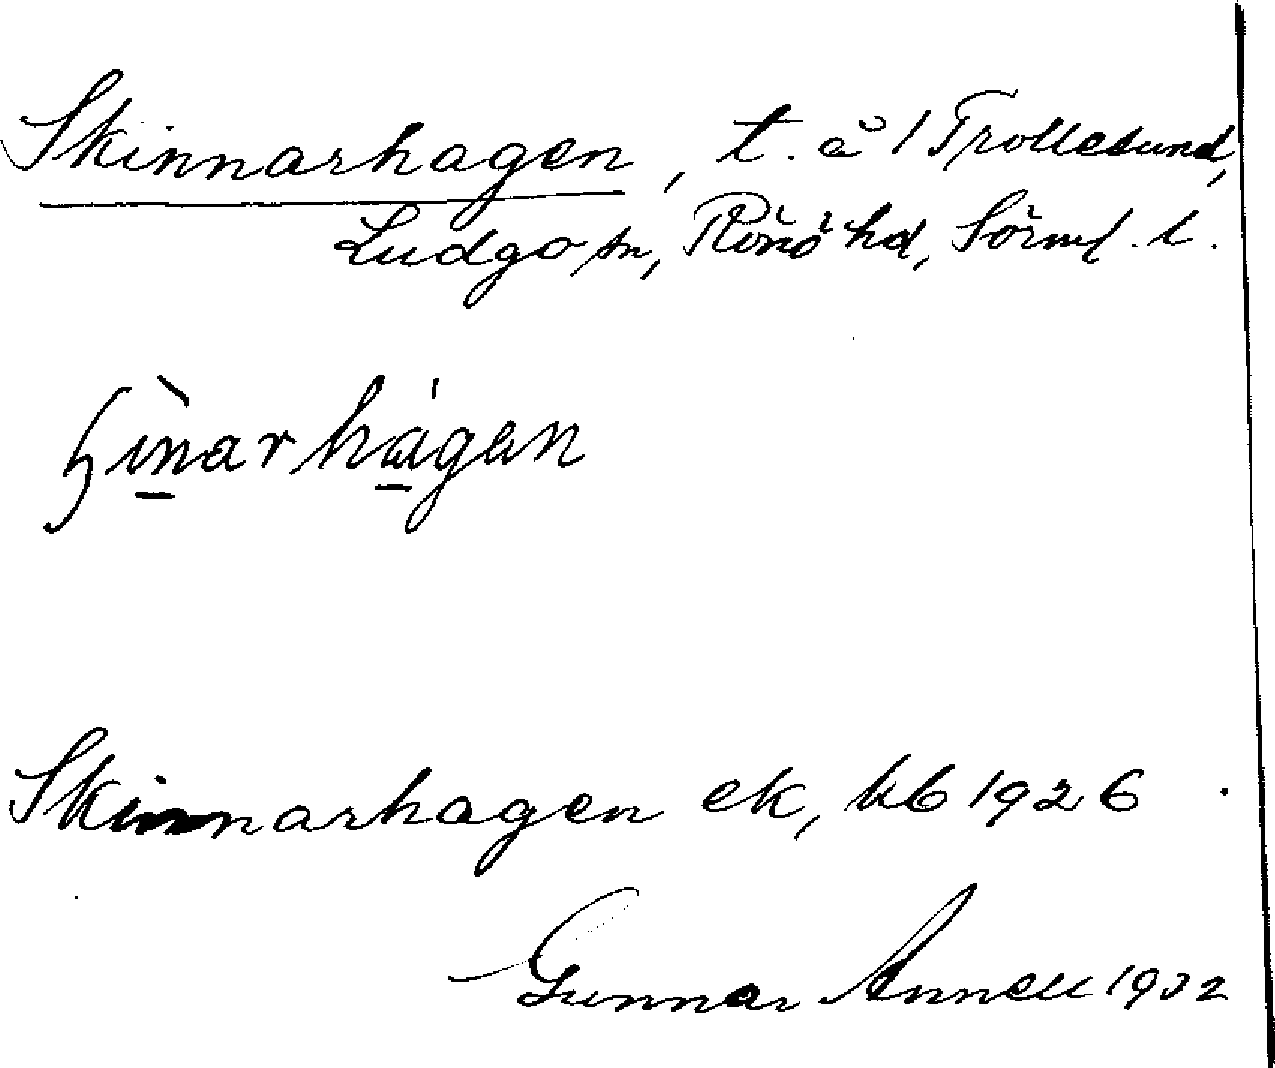 Skinnarhagen, t. å 1 Trollesund,
Ludgo sn, Rönö hd, Sörml. l.
Skinnarhagen ek, kb 1926.
Gunnar Annell 1932